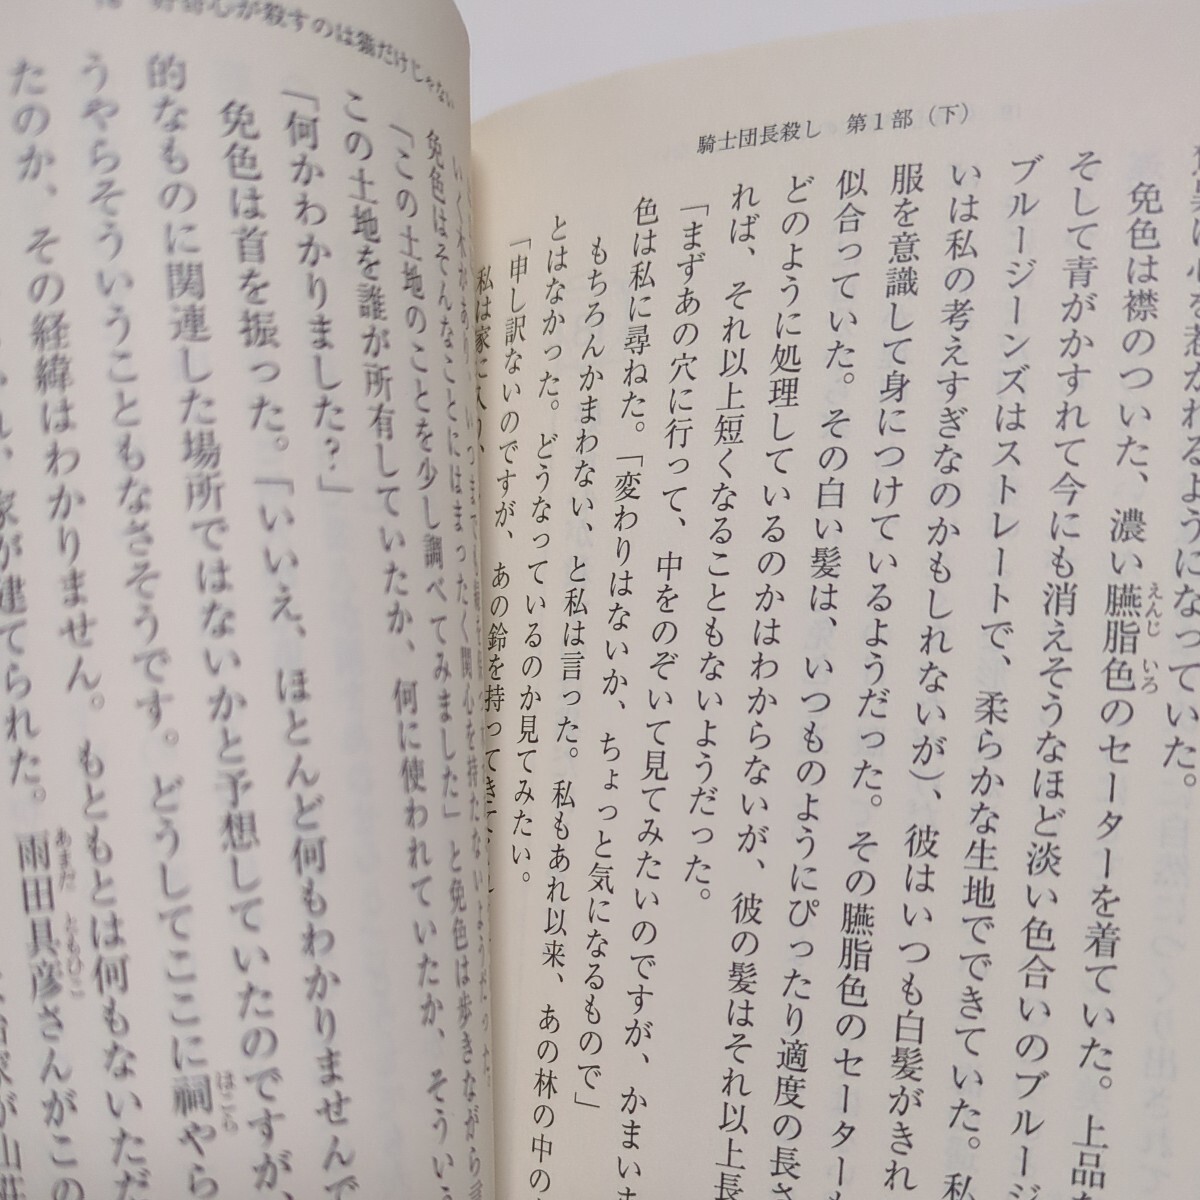 騎士団長殺し 第1部（下）
心を惹かれるようになっていた。
免色は襟のついた、濃い臙脂色のセーターを着ていた。上品
えんじ いろ
そして青がかすれて今にも消えそうなほど淡い色合いのブルー
ブルージーンズはストレートで、柔らかな生地でできていた。私
いは私の考えすぎなのかもしれないが）、彼はいつも白髪がきれ
服を意識して身につけているようだった。その臙脂色のセーター
似合っていた。その白い髪は、いつものようにぴったり適度の長さ
どのように処理しているのかはわからないが、彼の髪はそれ以上長
れば、それ以上短くなることもないようだった。
「まずあの穴に行って、中をのぞいて見てみたいのですが、かまい
色は私に尋ねた。「変わりはないか、ちょっと気になるもので」
もちろんかまわない、と私は言った。私もあれ以来、あの林の中の
とはなかった。どうなっているのか見てみたい。
「申し訳ないのですが、あの鈴を持ってきて
私は家に入り、
好奇心が殺すのは猫だけじゃない
免色はそんなことにはまったく関心を持たないようだった。
「この土地のことを少し調べてみました」と免色は歩きながら言
この土地を誰が所有していたか、何に使われていたか、そうい
「何かわかりました？」
免色は首を振った。「いいえ、ほとんど何もわかりませんで
的なものに関連した場所ではないかと予想していたのですが、
うやらそういうこともなさそうです。どうしてここに祠やら
ほこら
たのか、その経緯はわかりません。もともとは何もないただ
家が建てられた。雨田具彦さんがこの
あまだ ともひこ